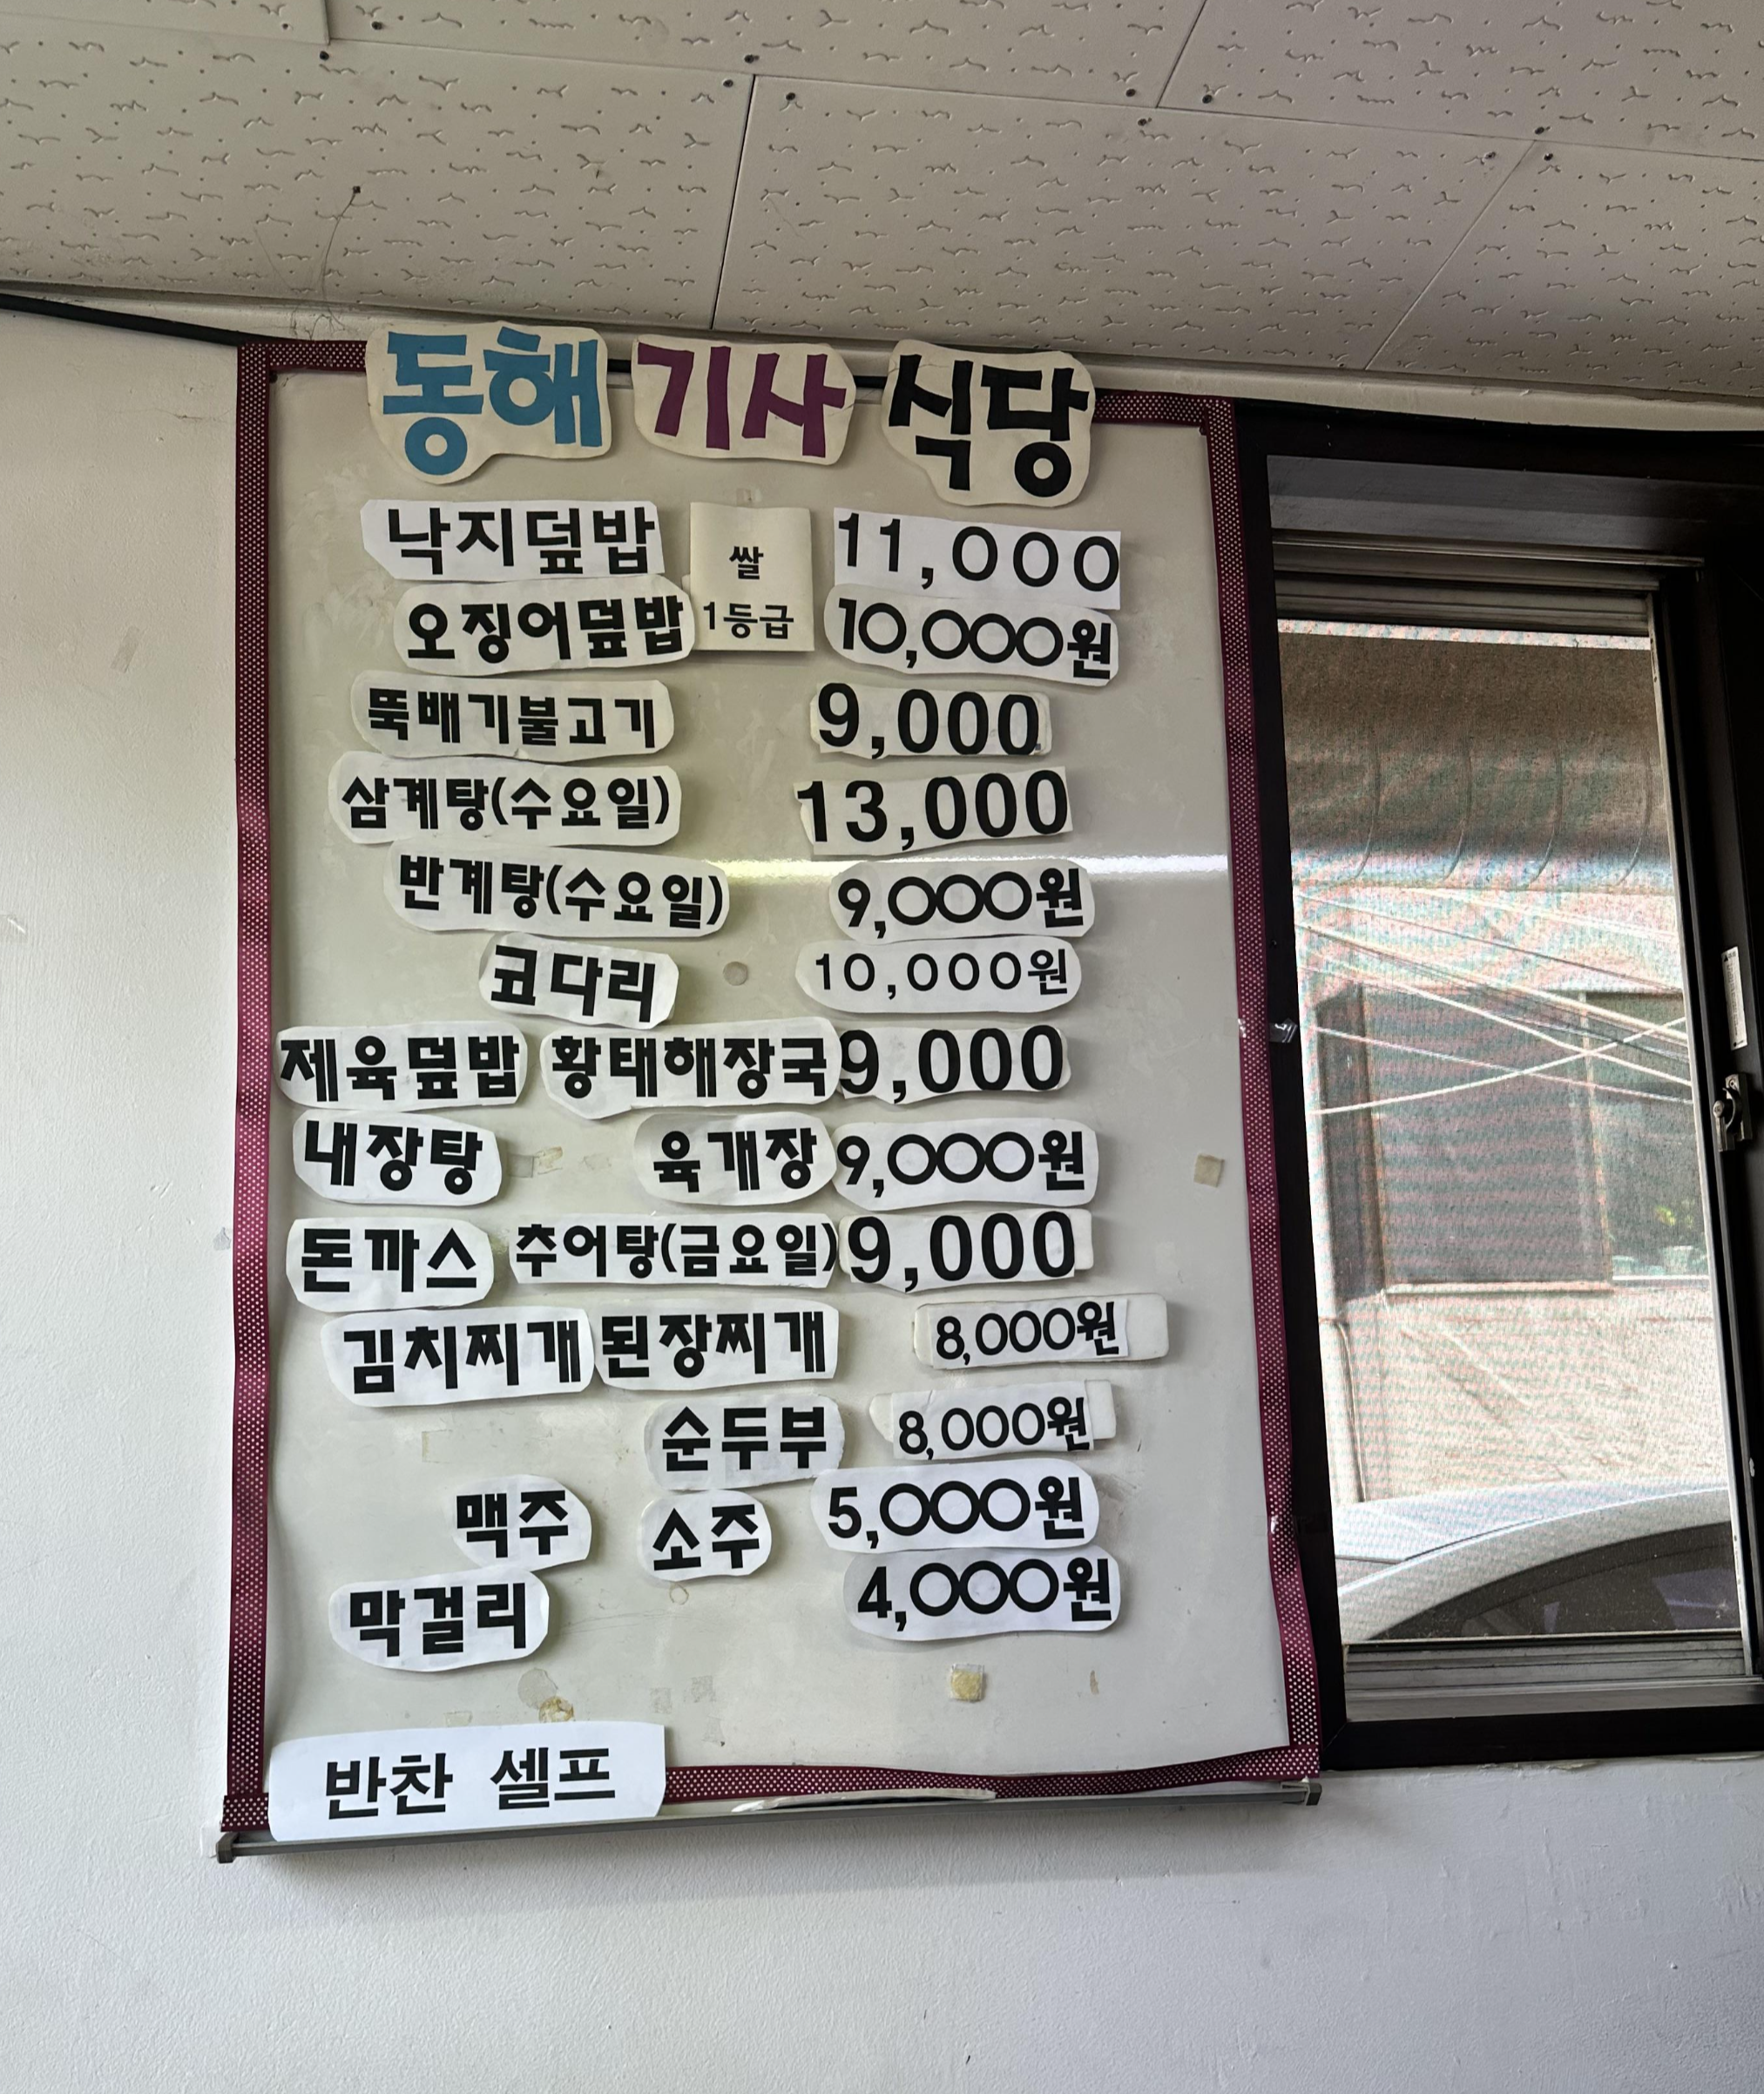 동해 기사 식당
낙지덮밥 쌀 11,000
오징어덮밥 1등급 10,000원
뚝배기불고기 9,000
삼계탕(수요일) 13,000
반계탕(수요일) 9,000원
코다리 10,000원
제육덮밥 황태해장국 9,000
내장탕 육개장 9,000원
돈까스 추어탕(금요일) 9,000
김치찌개 된장찌개 8,000원
순두부 8,000원
맥주 소주 5,000원
막걸리 4,000원
반찬 셀프